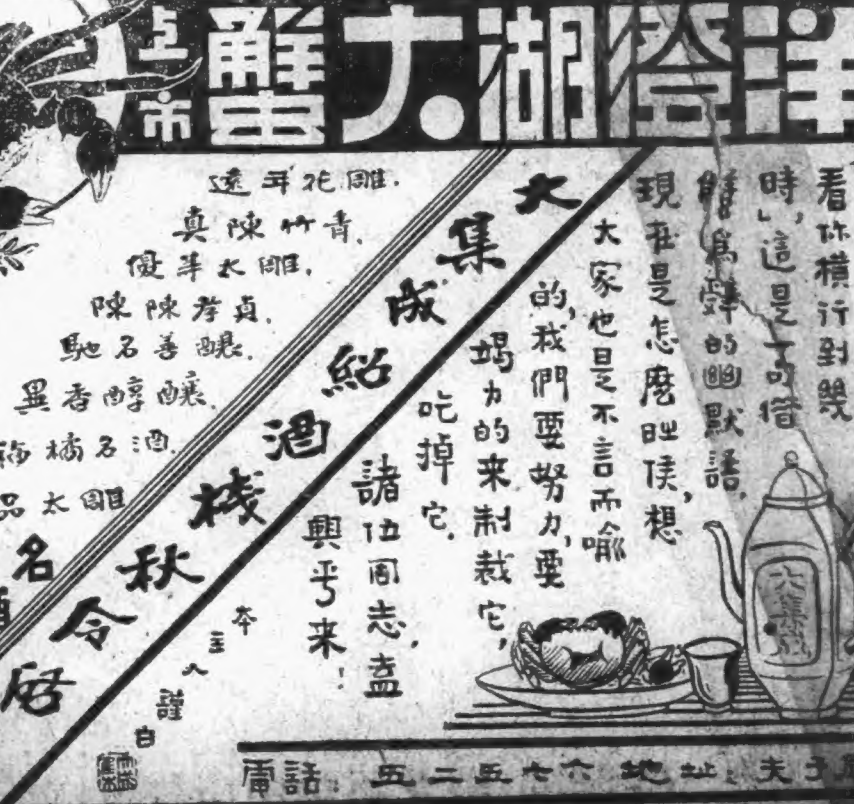 洋澄湖大蟹
上市
看你橫行到幾
時」這是一句借
蟹為譬的幽默語,
現在是怎麼时候,想
大家也是不言而喻
的,我們要努力,要
竭力的来制裁它,
吃掉它.
諸位同志,盍
興乎来!
大集成紹酒棧秋令啓
本主人謹白
遠年花雕.
真陳竹青.
優等太雕.
陳陳孝貞.
馳名善釀.
異香醇釀.
橘名酒.
品太雕
名
大集成
電話:五二五七六 地址:夫子